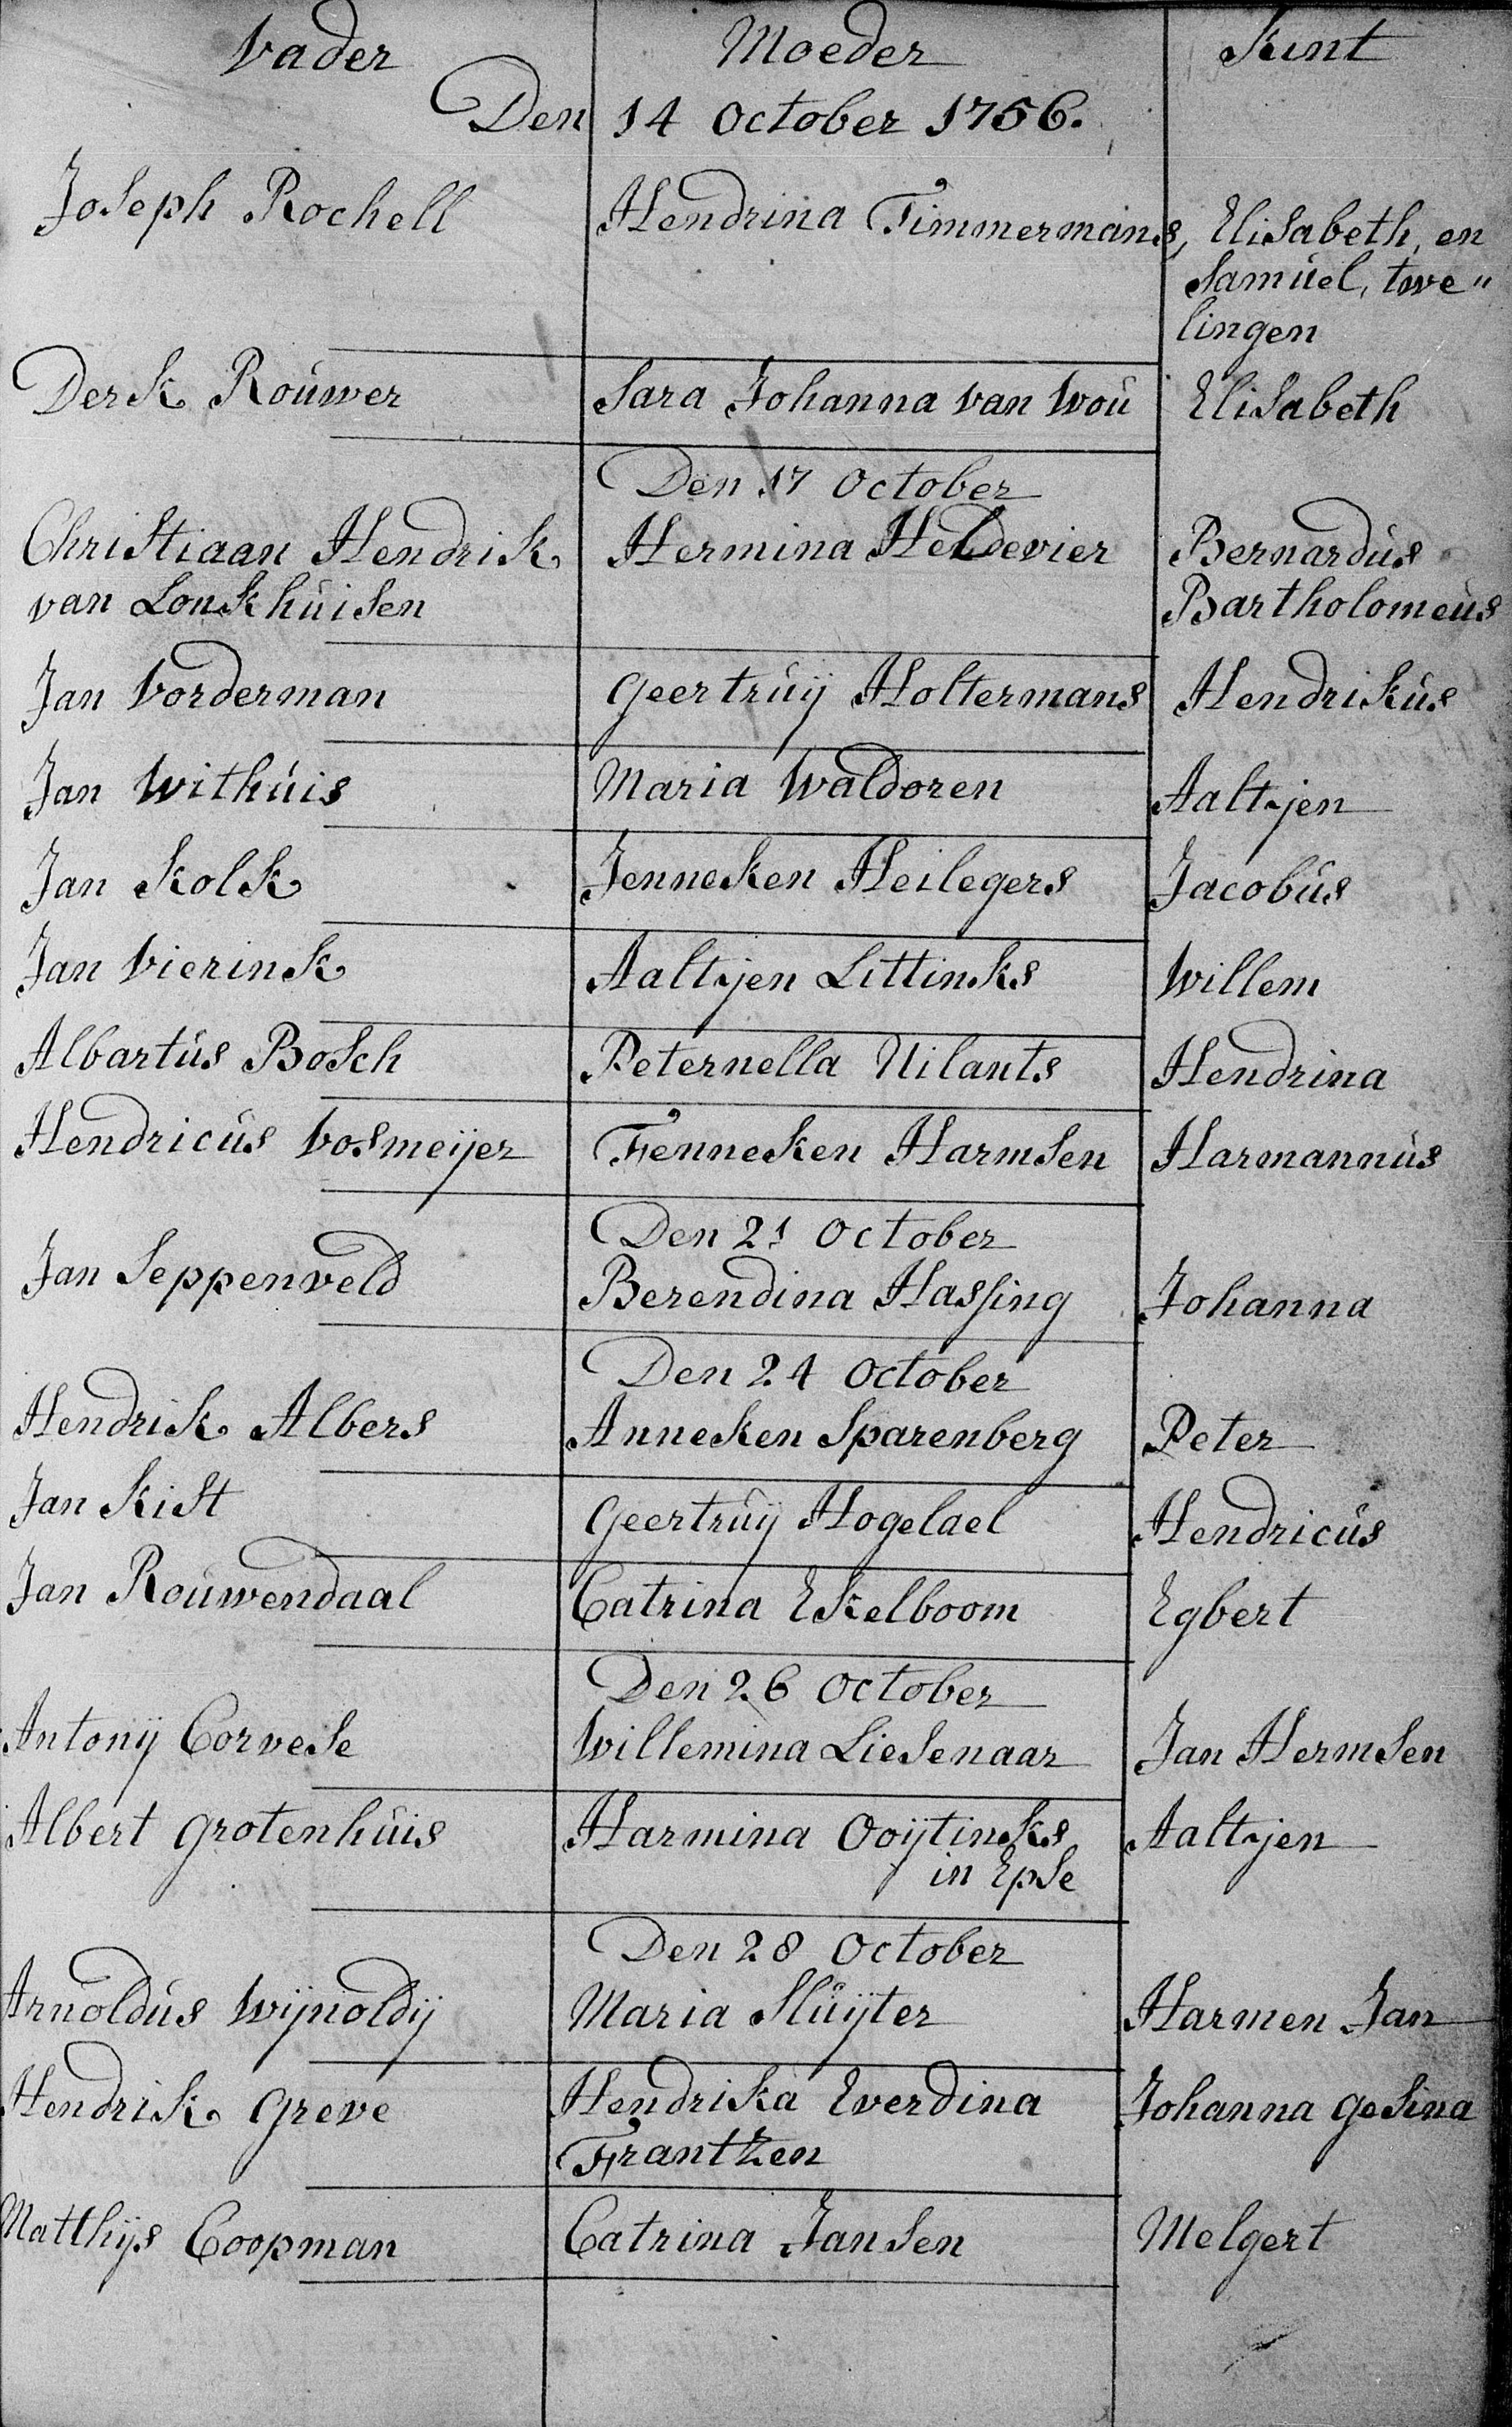 Vader Moeder Kint
Den 14 October 1756.
Joseph Rochell Hendrina Timmermans, Elisabeth, en
Samúel, twe„
lingen
Derk Roúwer Sara Johanna van Woú Elisabeth
Den 17 October
Christiaan Hendrik Hermina Heldevier Bernardús
van Lonkhúisen Bartholomeús
Jan Vorderman Geertrúij Holtermans Hendrikús
Jan Withúis Maria Waldoren Aaltjen
Jan Kolk Jenneken Heilegers Jacobús
Jan Vierink Aaltjen Littinks Willem
Albartús Bosch Peternella Nilants Hendrina
Hendricús Vosmeijer Fenneken Harmsen Harmannús
Den 21 October
Jan Seppenveld Berendina Hassing Johanna
Den 24 October
Hendrik Albers Anneken Sparenberg Peter
Jan Kist Geertrúij Hogelael Hendricús
Jan Roúwendaal Catrina Ekelboom Egbert
Den 26 October
Antonij Corvese Willemina Liesenaar Jan Hermsen
Albert Grotenhúis Harmina Ooijtinks Aaltjen
in Epse
Den 28 October
Arnoldús Wijnoldij Maria Slúijter Harmen Jan
Hendrik Greve Hendrika Everdina Johanna Gesina
Frantzen
Matthijs Coopman Catrina Jansen Melgert